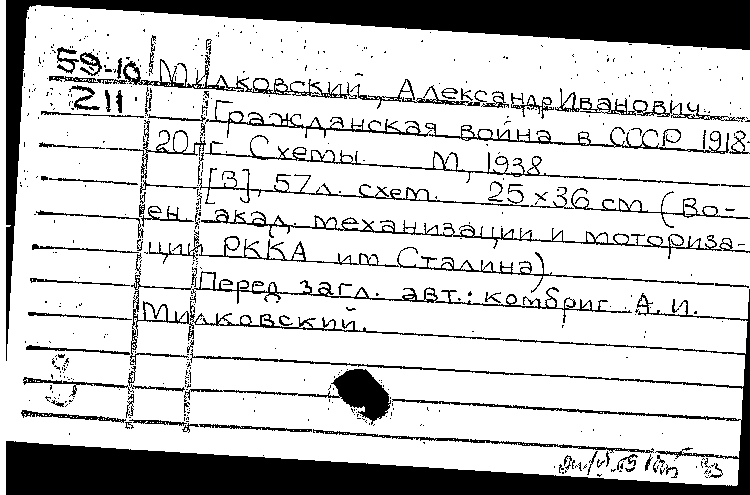 59-10 Милковский, Александр Иванович.
211 Гражданская война в СССР 1918-
20 гг. Схемы. М, 1938.
[3], 57 л. схем. 25 x 36 см (Во-
ен. акад. механизации и моториза-
ции РККА им Сталина)
Перед загл. авт.: комбриг А. И.
Милковский.